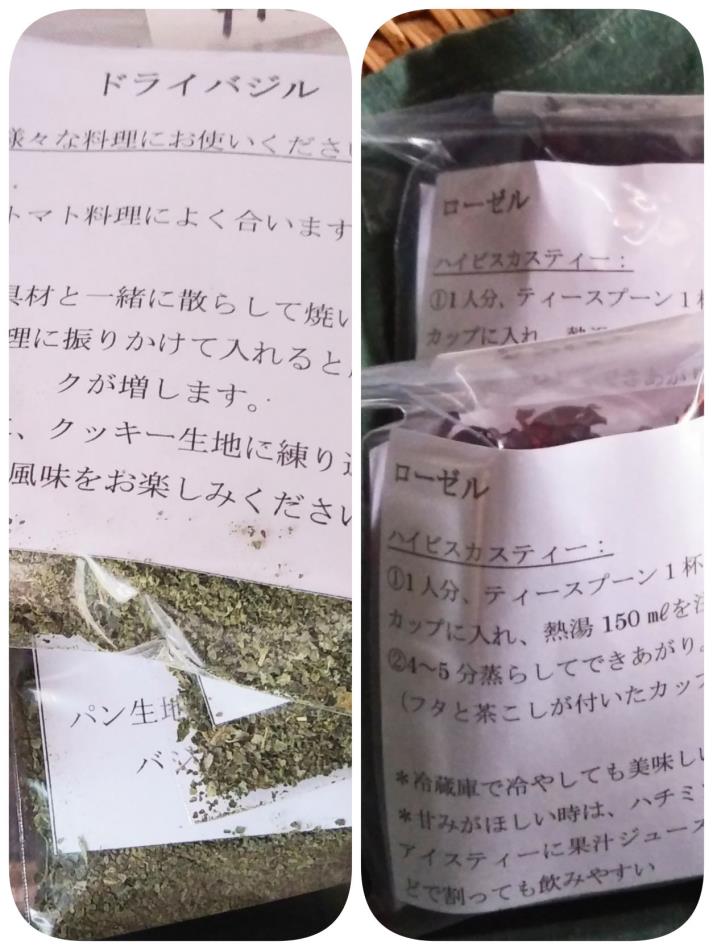 ドライバジル
様々な料理にお使いくださ
トマト料理によく合います
具材と一緒に散らして焼い
理に振りかけて入れると
クが増します。
、クッキー生地に練り
風味をお楽しみくださ
パン生地
バ
ローゼル
ハイビスカスティー：
①1人分、ティースプーン1
カップに入れ、熱
ローゼル
ハイビスカスティー：
①1人分、ティースプーン1杯
カップに入れ、熱湯150㎖を注
②4～5分蒸らしてできあがり。
（フタと茶こしが付いたカップ
＊冷蔵庫で冷やしても美味しい
＊甘みがほしい時は、ハチミ
アイスティーに果汁ジュース
どで割っても飲みやすい